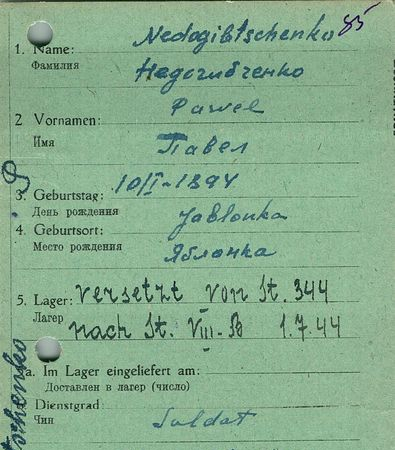 85
1. Name: Nedogibtschenko
Фамилия Недогибченко
2 Vornamen: Pawel
Имя Павел
3. Geburtstag: 10/I-1894
День рождения
4. Geburtsort: Jablonka
Место рождения Яблонка
5. Lager: versetzt von St. 344
Лагер nach St. VIII-B 1.7.44
a. Im Lager eingeliefert am:
Доставлен в лагер (число)
Dienstgrad:
Чин Soldat